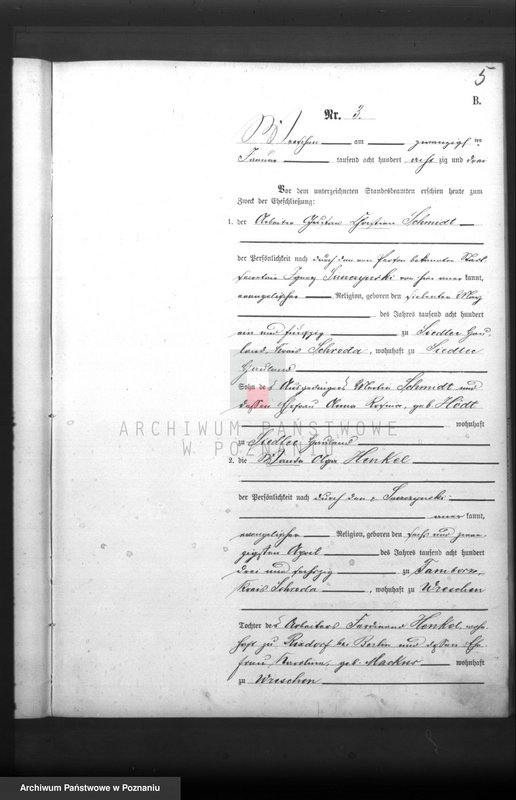 5
B.
Nr. 3.
Wreschen am zwanzigsten
Januar tausend acht hundert achtzig und drei
Vor dem unterzeichneten Standesbeamten erschien heute zum
Zweck der Eheschließung:
1. der Arbeiter Gustav Christian Schmidt
der Persönlichkeit nach durch den von Person bekannten Stadt
secretair Ignaz von hier anerkannt,
evangelischer Religion, geboren den siebenten März
des Jahres tausend acht hundert
ein und fünfzig zu Siedlec Hau-
land, Kreis Schroda, wohnhaft zu Siedlec
Hauland
Sohn des Ausgedingers Martin Schmidt und
dessen Ehefrau Anna Rosina, geb. Hödt
wohnhaft
zu Siedlec Hauland
2. die Wanda Olga Henkel
der Persönlichkeit nach durch den
anerkannt,
evangelischer Religion, geboren den sechs und zwan-
zigsten April des Jahres tausend acht hundert
drei und sechszig zu
Kreis Schroda, wohnhaft zu Wreschen
Tochter des Arbeiters Ferdinand Henkel, wohn-
haft zu Rixdorf bei Berlin und dessen Ehe-
frau Karoline, geb. wohnhaft
zu Wreschen
ARCHIWUM PAŃSTWOWE
W POZNANIU
Archiwum Państwowe w Poznaniu
Archiwum Państwowe w Poznaniu